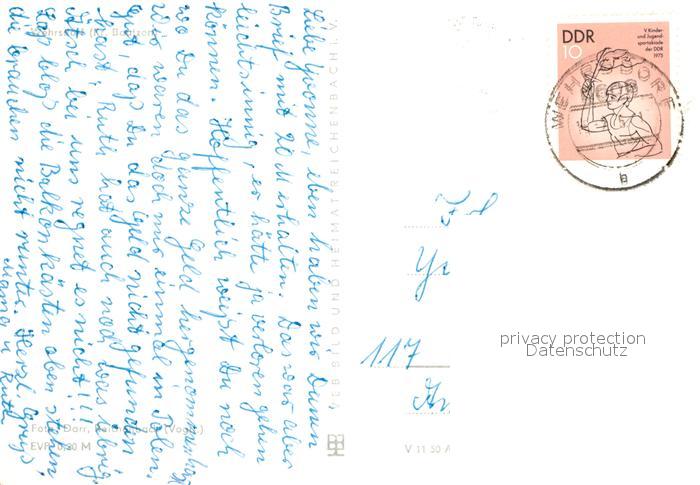 Wehrsdorf (Kr. Bautzen)
Liebe Yvonne, eben haben wir Deinen
Brief mit 20 M erhalten. Das war aber
leichtsinnig, es hätte ja verloren gehen
können. Hoffentlich weißt Du noch
wo Du das ganze Geld hergenommen hast
Wir waren doch nur einmal in
gut, daß Du das Geld nicht gefunden
hast. Ruth hat auch noch was übrig.
bei uns regnet es nicht!!!
Laß bloß die Balkonkästen oben stehen
die brauchen nicht runter. Herzl. Grüße
Mama u Ruth
Foto: Darr, Reichenbach (Vogtl.)
EVP 0,20 M
VEB BILD UND HEIMAT REICHENBACH I. V.
V 11 50 A
DDR
10
V. Kinder-
und Jugend-
spartakiade
der DDR
1975
WEHRSDORF
a
117
privacy protection
Datenschutz